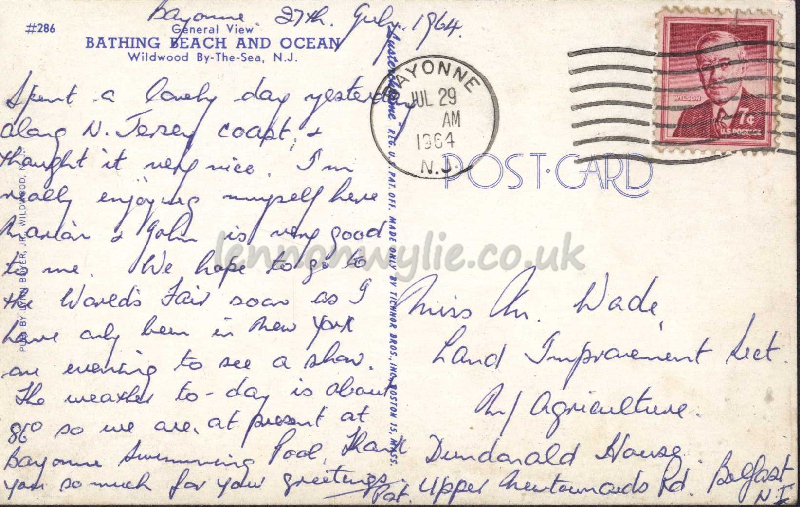 Bayonne 27th. July. 1964.
#286
General View
BATHING BEACH AND OCEAN
Wildwood By-The-Sea, N.J.
Spent a lovely day yesterday
along N. Jersey coast, &
thought it very nice. I'm
really enjoying myself here
Marian & John is very good
to me. We hope to go to
the World's Fair soon as I
have only been in New York
one evening to see a show.
The weather to-day is about
86º so we are at present at
Bayonne Swimming Pool. Thank
you so much for your greetings.
Pat.
PUB BY JOHN BOYER, JR., WILDWOOD, N.J.
REG. U. S. PAT. OFF. MADE ONLY BY TICHNOR BROS., INC., BOSTON 15, MASS.
BAYONNE
JUL 29
AM
1964
N.J.
WILSON
7¢
U.S. POSTAGE
POST-CARD
lennonwylie.co.uk
Miss M. Wade,
Land Improvement Sect.
M/Agriculture.
Dundonald House
Upper Newtownards Rd. Belfast
N.I.